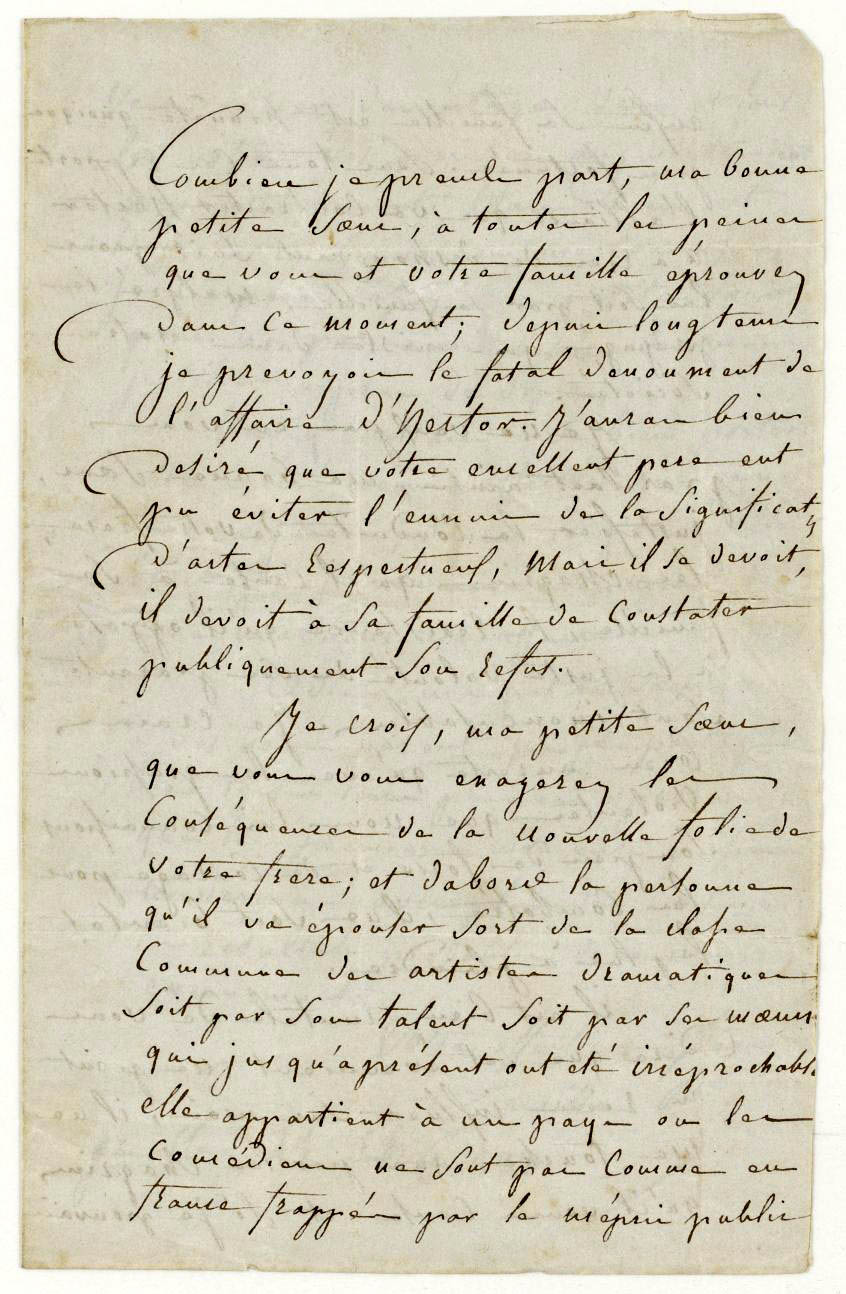 Combien je prends part, ma bonne
petite Sœur, à toutes les peines
que vous et votre famille éprouvez
dans ce moment; depuis longtems
je prevoyois le fatal denoument de
l'affaire d'Hector. J'aurais bien
desiré que votre excellent pere eut
pu éviter l'ennui de la Significat°ⁿ
d'actes Respectueux, Mais il se devoit,
il devoit à Sa famille de Constater
publiquement Son Refus.
Je crois, ma petite Sœur,
que vous vous exagerez les
Conséquences de la nouvelle folie de
votre frere; et dabord la personne
qu'il va épouser Sort de la classe
Commune des artistes dramatiques
Soit par Son talent Soit par Ses mœurs
qui jusqu'aprésent ont été irréprochables
elle appartient à un pays ou les
Comédiens ne Sont pas Comme en
france frappés par le mépris public